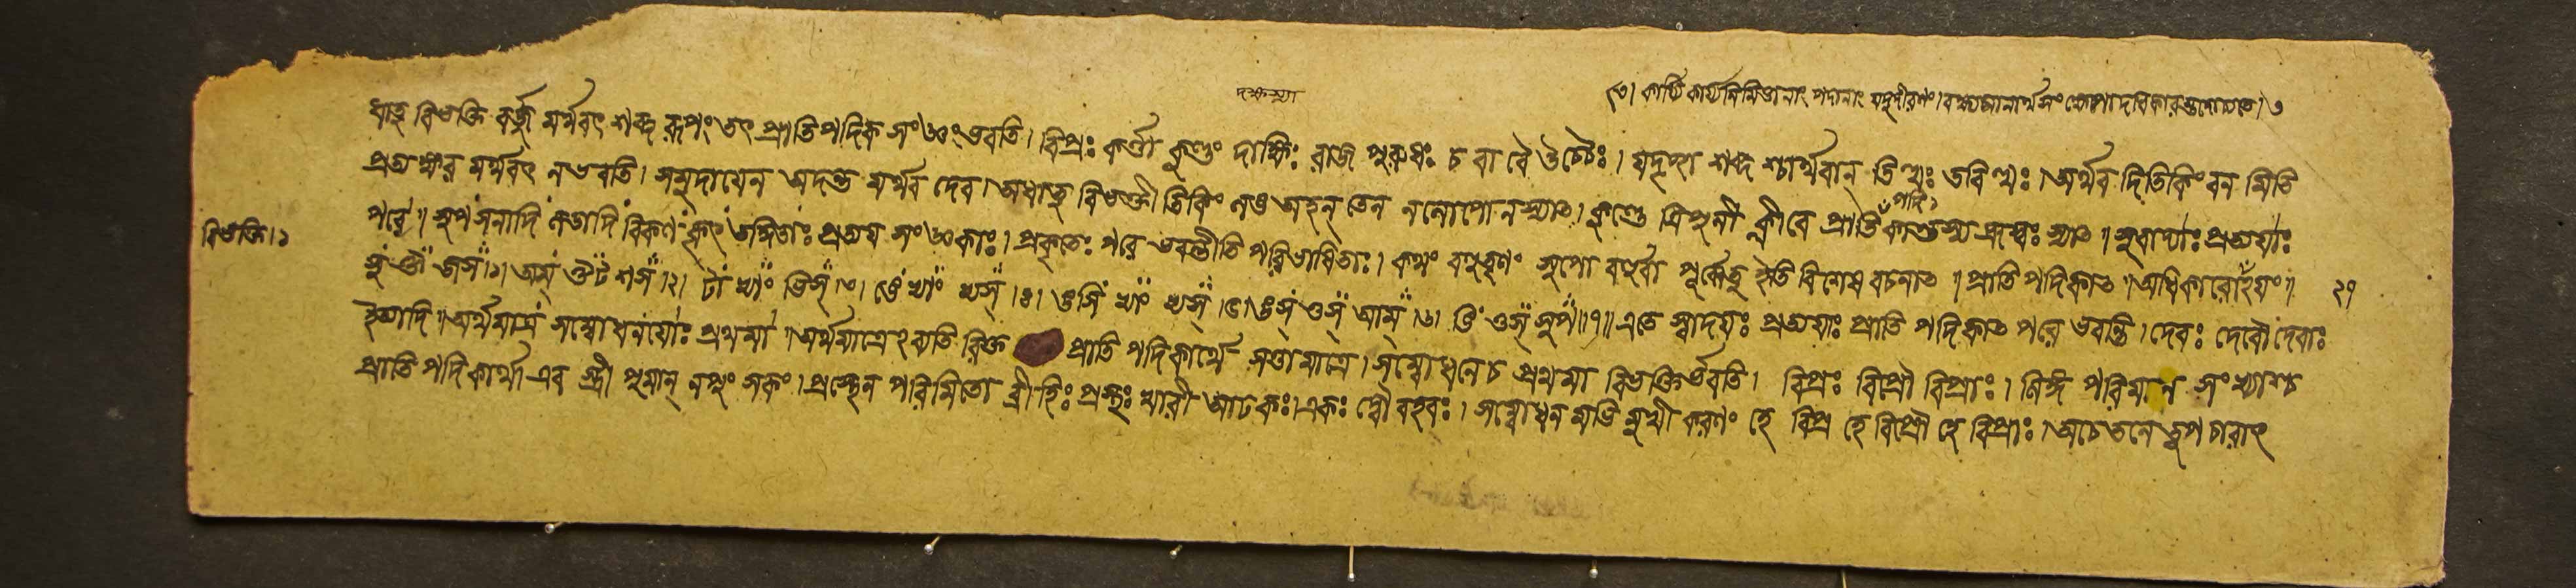 দক্ষস্যা
কার্য্যি কার্য্যনিমিত্তানাং পদানাং যদুদীরণং। বক্ষ্যমানার্থ
ধাতু বিভক্তি বর্জ্জ মর্থবৎ শব্দ রূপং তৎ প্রাতিপদিক সংজ্ঞং ভবতি। বিপ্রঃ কর্ত্তা কুণ্ডং দাক্ষিঃ রাজ পুরুষঃ চ বা বৈ উচ্চৈঃ। যদৃচ্ছা শব্দ শ্চার্থবান্ ডিত্থঃ ডবিত্থঃ। অর্থব দিতি কিং বন মিতি
প্রত্যক্ষর মর্থবৎ নভবতি। সমুদায়েন তদন্ত মর্থব দেব। অধাতু বিভক্তী তিকিং অহন্ তেন ননোপোনস্যাৎ। কুণ্ডে ত্রপুনী ক্লীবে প্রাতিপদিকান্তস্য হ্রস্বঃ স্যাৎ॥ স্বাদ্যাঃ প্রত্যয়াঃ
বিভক্তি।১
পরে॥ সুপ্ সনাদি কৃতাদি বিকরণ তদ্ধিতাঃ প্রত্যয় সংজ্ঞকাঃ। প্রকৃতেঃ পরে ভবন্তীতি পরিভাষিতাঃ। কথং বহুতৃণং সুপো বহুর্বা পূর্ব্বেতু ইতি বিশেষ বচনাৎ॥ প্রাতি পদিকাৎ॥ অধিকারোঽয়ং॥ ২৭
সু ঔ জস্।১। অম্ ঔট শস্।২। টা ভ্যাং ভিস্।৩। ঙে ভ্যাং ভ্যস্।৪। ঙসি ভ্যাং ভ্যস্।৫। ঙস্ ওস্ আম্।৬। ঙি ওস্ সুপ্॥৭॥ এতে স্বাদয়ঃ প্রত্যয়াঃ প্রাতি পদিকাৎ পরে ভবন্তি। দেবঃ দেবৌ দেবাঃ
ইত্যাদি॥ অর্থমাত্র সম্বোধনয়োঃ প্রথমা॥ অর্থমাত্রেঽব্যতি রিক্ত প্রাতি পদিকার্থে সত্তামাত্রে। সম্বোধনে চ প্রথমা বিভক্তির্ভবতি। বিপ্রঃ বিপ্রৌ বিপ্রাঃ। লিঙ্গ পরিমান সংখ্যাশ্চ
প্রাতি পদিকার্থা এব স্ত্রী পুমান্ নপুং সকং। প্রস্থেন পরিমিতো ব্রীহিঃ প্রস্থঃ খারী আঢকঃ। একঃ দ্বৌ বহবঃ। সম্বোধন মভি মুখী করণং হে বিপ্র হে বিপ্রৌ হে বিপ্রাঃ। অচেতনে তুপচারাৎ